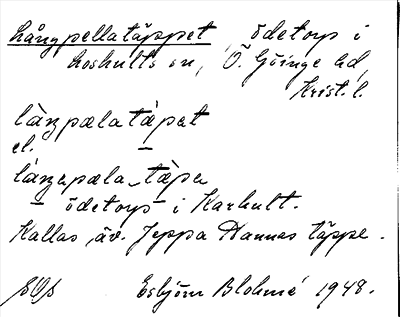 Långpellatäppet, ödetorp i
Loshults sn, Ö. Göinge hd,
Krist. l.
làŋpælatæ̀pət
el.
làŋapæla_tæ̀pa
ödetorp i Karhult.
Kallas äv. Jeppa Hannas täppe.
Esbjörn Blohmé 1948.